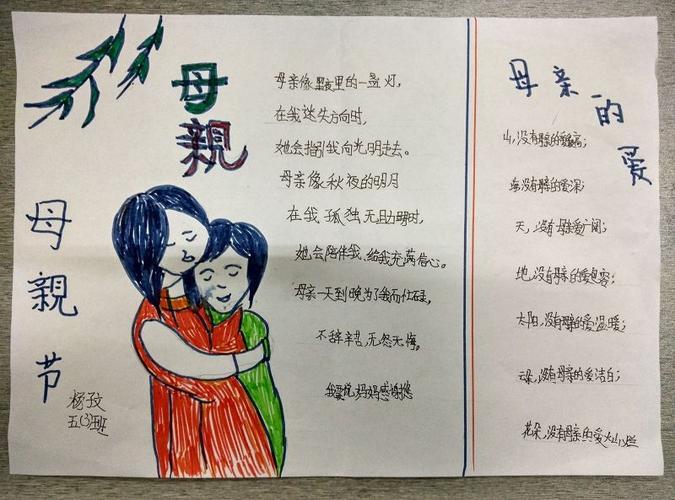 母親
母親节
杨孜
五(3)班
母亲像黑夜里的一盏灯,
在我迷失方向时,
她会指引我向光明走去。
母亲像秋夜的明月
在我孤独无助时,
她会陪伴我,给我充满信心。
母亲一天到晚为了我而忙碌,
不辞辛苦,无怨无悔。
我爱妈妈感谢您
母亲的爱
山,没有母亲的爱高;
海,没有母亲的爱深;
天,没有母亲爱广阔;
地,没有母亲的爱包容;
太阳,没有母亲的爱温暖;
云朵,没有母亲的爱洁白;
花朵,没有母亲的爱灿烂